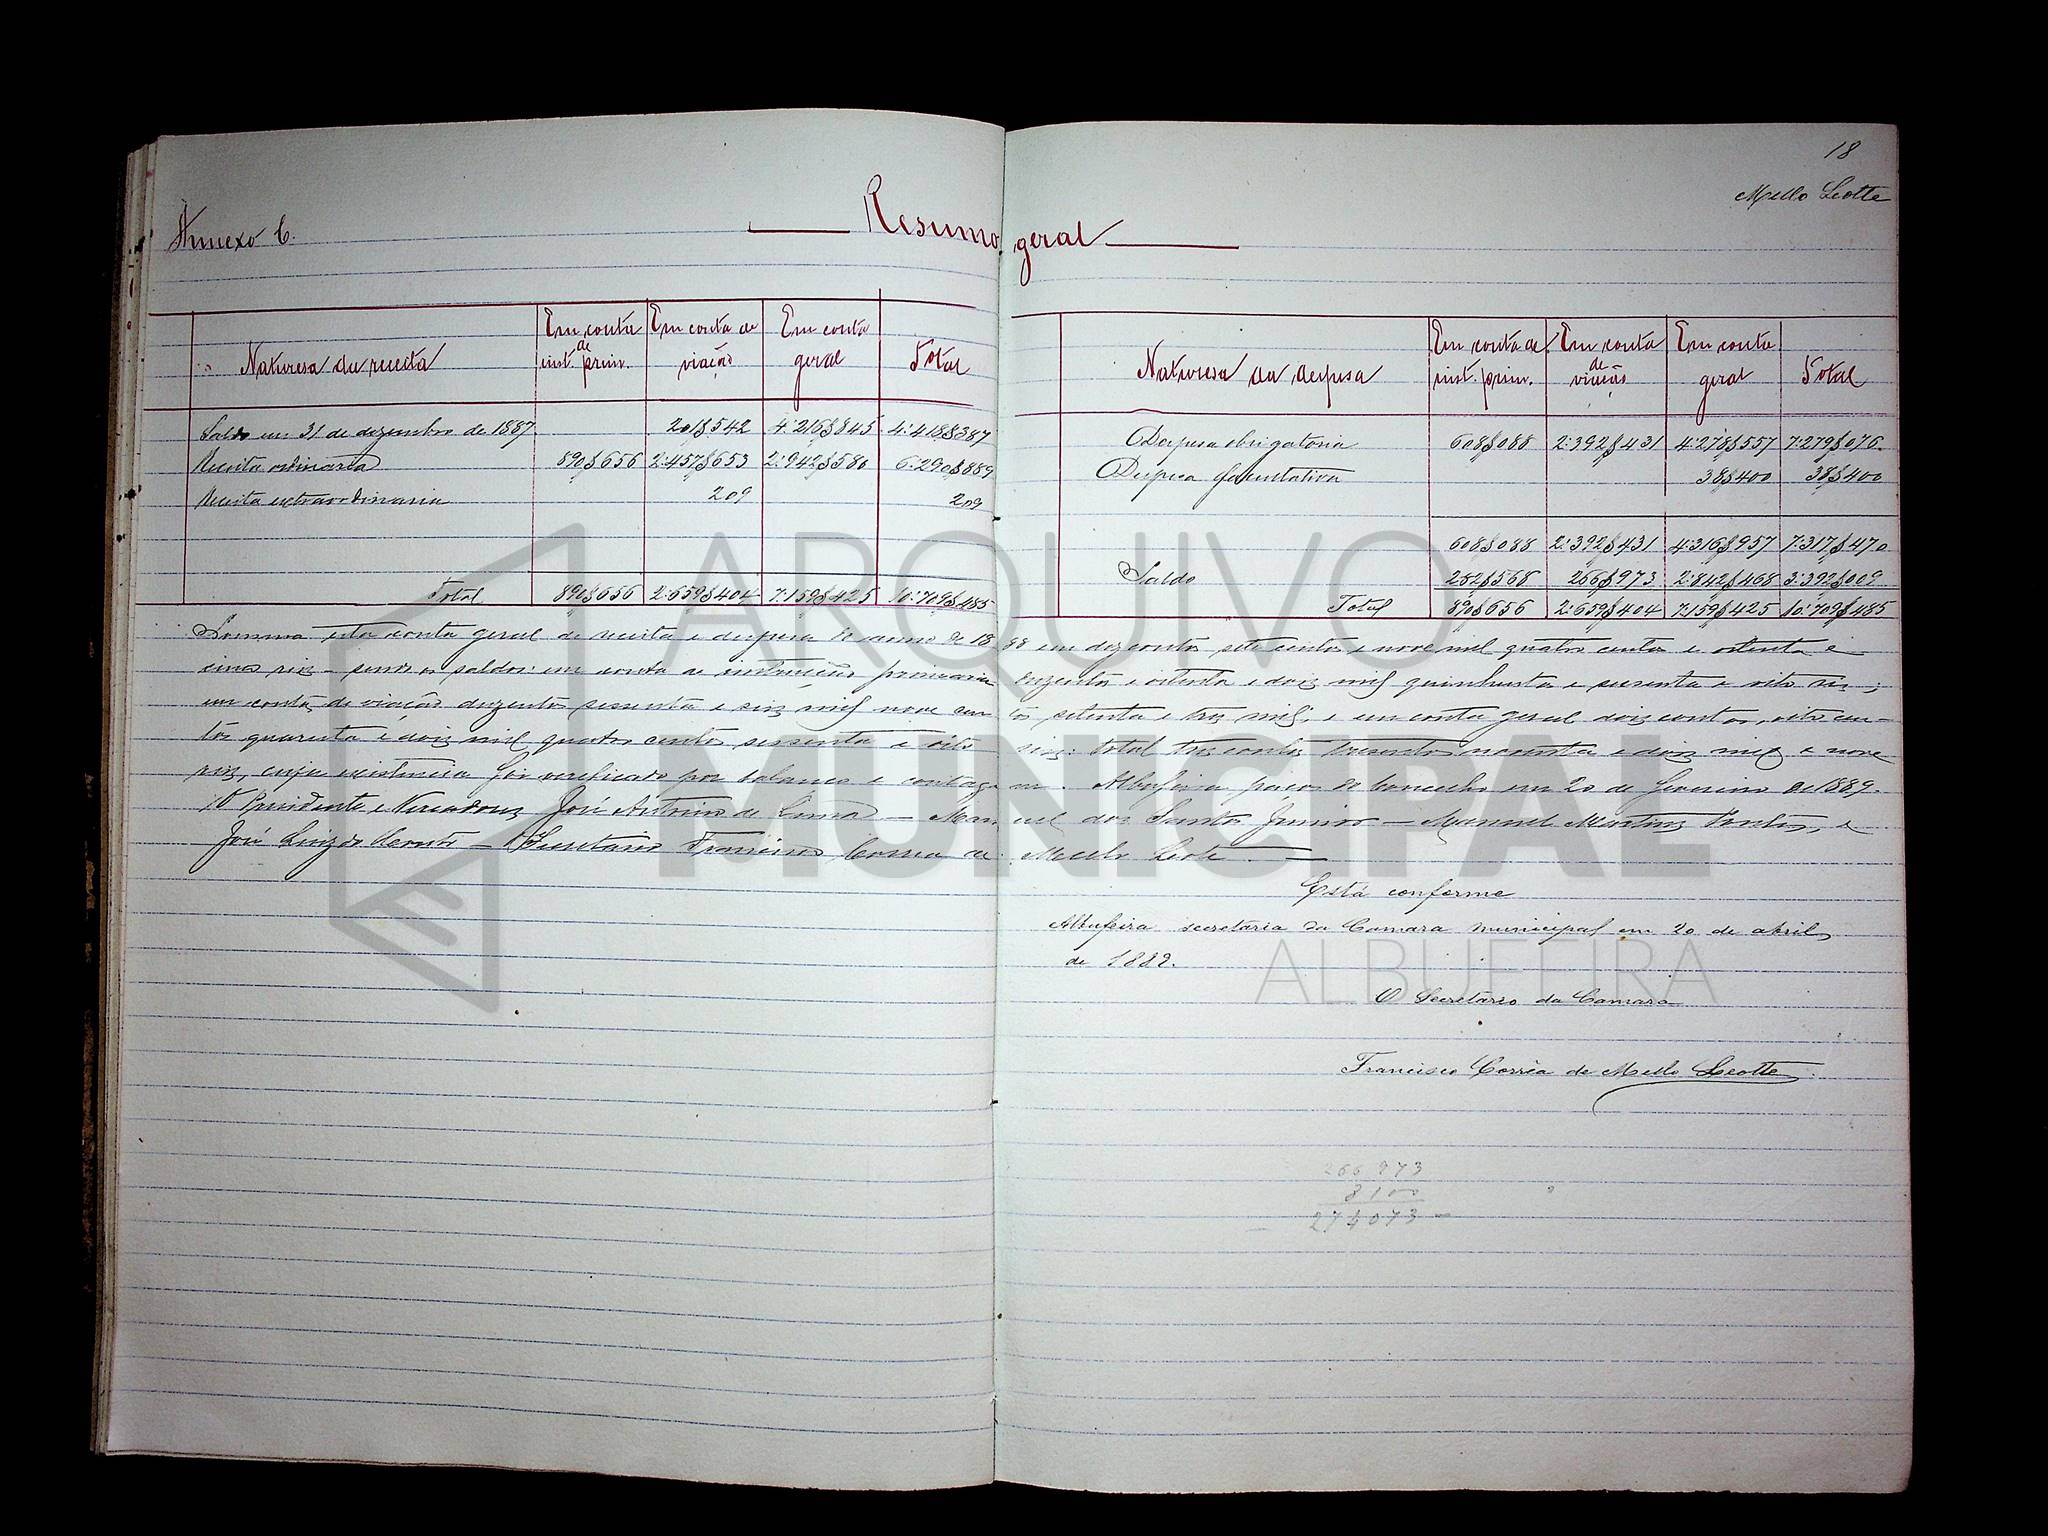 18
Mello Leotte
Annexo C.
Resumo geral
Naturesa da receita | Em conta de inst. prim. | Em conta de viação | Em conta geral | Total
Saldo em 31 de dezembro de 1887 | | 201$542 | 4:216$845 | 4:418$387
Receita ordinaria | 890$656 | 2:457$653 | 2:942$580 | 6:290$889
Receita extraordinaria | | 209 | | 209
Total | 890$656 | 2:659$404 | 7:159$425 | 10:709$485
Naturesa da despesa | Em conta de inst. prim. | Em conta de viação | Em conta geral | Total
Despesa obrigatoria | 608$088 | 2:392$431 | 4:278$557 | 7:279$076
Despesa facultativa | | | 38$400 | 38$400
608$088 | 2:392$431 | 4:316$957 | 7:317$476
Saldo | 282$568 | 266$973 | 2:842$468 | 3:392$009
Total | 890$656 | 2:659$404 | 7:159$425 | 10:709$485
Somma esta conta geral de receita e despesa do anno de 1888 em dez contos sete centos e nove mil quatro centos e oitenta e
cinco reis – sendo os saldos: em conta de instrucção primaria duzentos e oitenta e dois mil quinhentos e sessenta e oito reis;
em conta de viação duzentos sessenta e seis mil nove centos setenta e tres mil; e em conta geral dois contos, oito cen-
tos quarenta e dois mil quatro centos sessenta e oito reis: total tres contos trezentos noventa e dois mil e nove
reis, cuja existencia foi verificada por balanço e contagem. Albufeira paços do concelho em 20 de fevereiro de 1889.
O Presidente e Vereadores José Antonio de Lima – Manuel dos Santos Junior – Manuel Martins Pontes, e
José Luiz do – O Secretario Francisco Correa de Mello Leote. –
Está conforme
Albufeira secretaria da Camara municipal em 20 de abril
de 1889.
O Secretario da Camara
Francisco Corrêa de Mello Leotte
266 973
8100
274073
ARQUIVO
MUNICIPAL
ALBUFEIRA